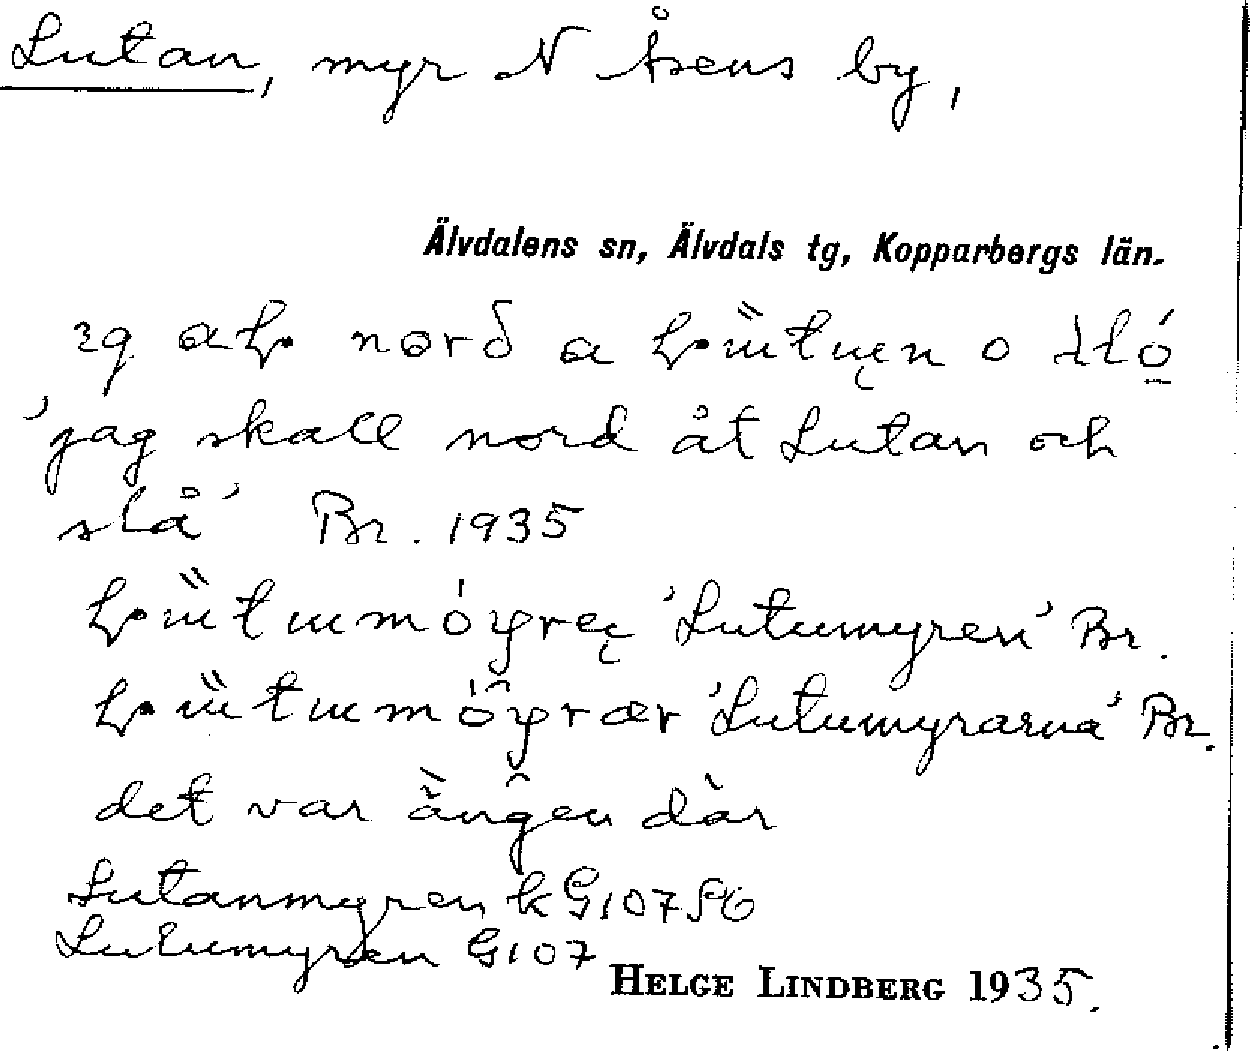 Lutan, myr N Åsens by,
Älvdalens sn, Älvdals tg, Kopparbergs län.
nord a o
'jag skall nord åt Lutan och
slå' Br. 1935
'Lutumyren' Br.
'Lutumyrarna' Br.
det var ängen där
Lutanmyren k G107
Lutumyren G107
HELGE LINDBERG 1935.